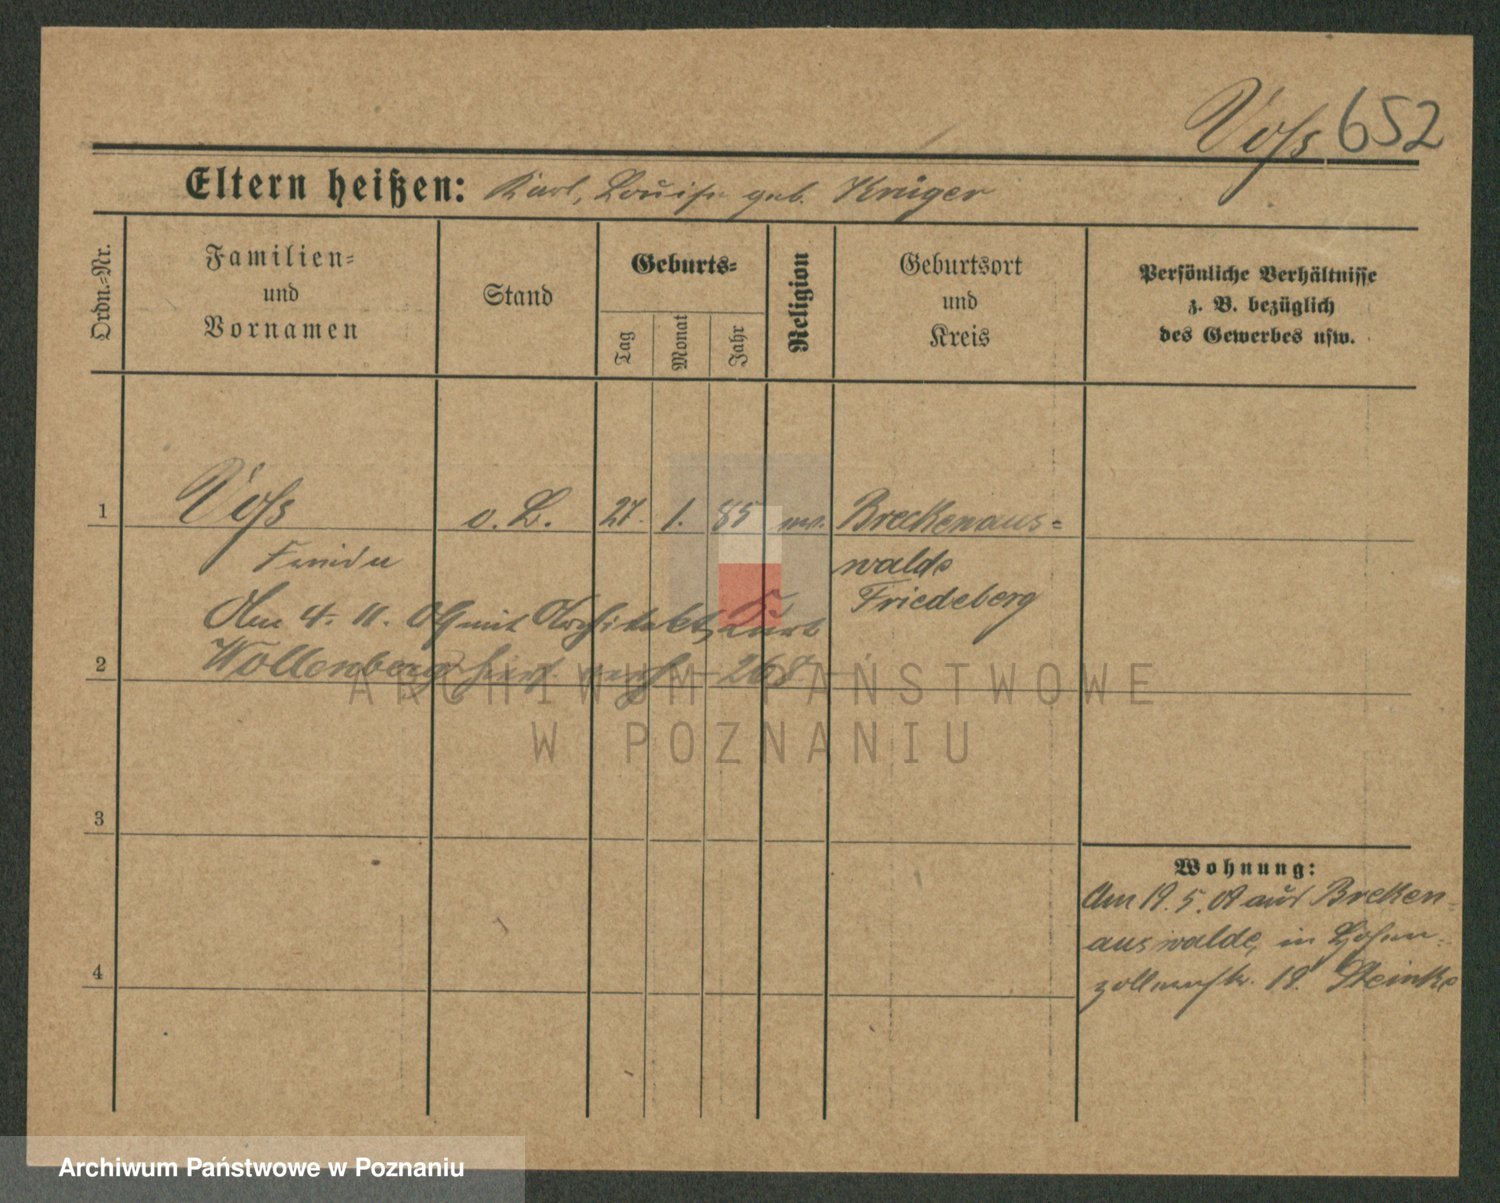 Voß 652
Eltern heißen: Karl, Louise geb. Krüger
Ordn.-Nr.
Familien-
und
Vornamen
Stand
Geburts-
Tag
Monat
Jahr
Religion
Geburtsort
und
Kreis
Persönliche Verhältnisse
z. B. bezüglich
des Gewerbes usw.
1 Voß o. B. 27. 1. 85 Breckenaus-
Frieda walde
Friedeberg
Am 4. 11. 09 mit Architekt Kurt
2 Wollenberg hier verh. 268
ARCHIWUM PAŃSTWOWE
W POZNANIU
3
Wohnung:
Am 19. 5. 09 aus Brecken-
auswalde, in Hohen-
4
zollernstr. 18. Steinke
Archiwum Państwowe w Poznaniu